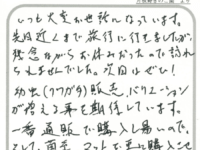 いつも大変お世話になっています。
先日近くまで旅行に行きましたが、
残念ながらお休みだったので訪れ
られませんでした。次回はぜひ!
幼虫(ワゲ方)販売、バリエーション
が増える事を期待しています。
一番通販で購入し易いので。
そして菌糸、マットも更に購入して